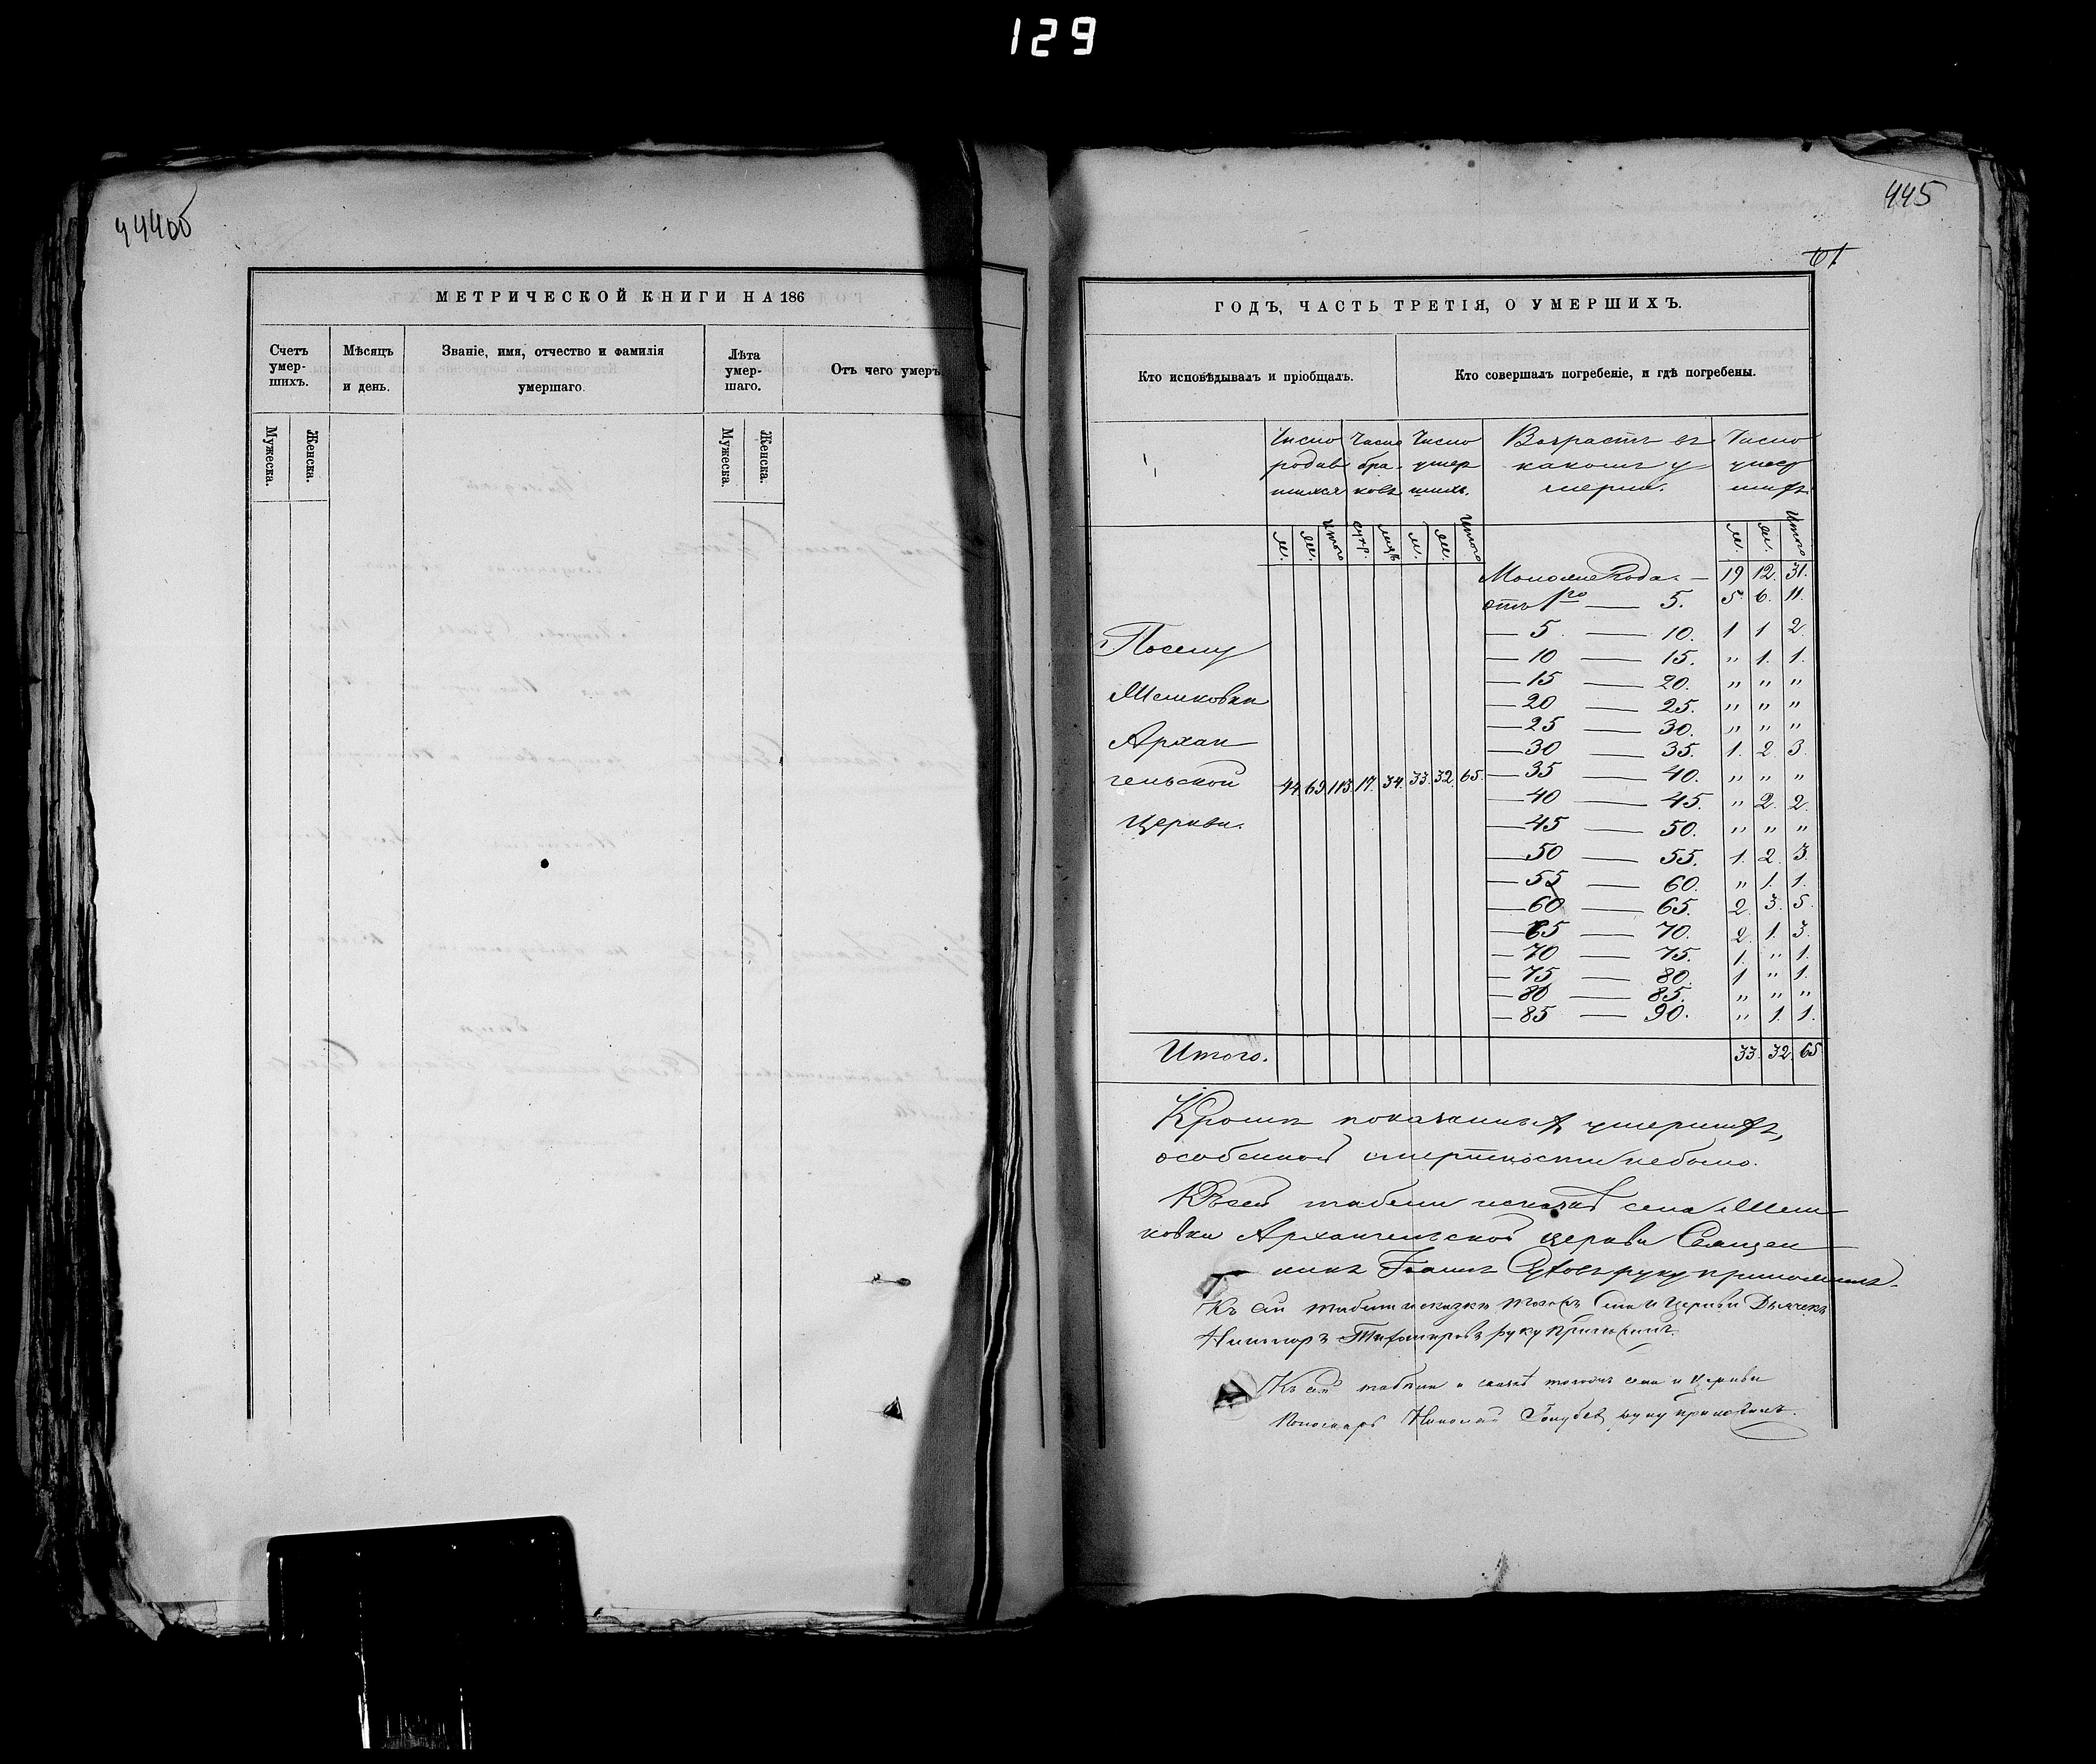 129
444об
МЕТРИЧЕСКОЙ КНИГИ НА 186
Счетъ умер-шихъ.
Мѣсяцъ и день.
Званіе, имя, отчество и фамилія умершаго.
Лѣта умер-шаго.
Отъ чего умеръ
Мужеска.
Женска.
Мужеска.
Женска.
445
61
ГОДЪ, ЧАСТЬ ТРЕТІЯ, О УМЕРШИХЪ.
Кто исповѣдывалъ и пріобщалъ.
Кто совершалъ погребеніе, и гдѣ погребены.
Число родив шихся
Число бра ковъ
Число умер шихъ.
Возрастъ въ какомъ у мерли.
Число умер шихъ
м. ж. Итого супр. лицъ м. ж. Итого
м. ж. Итого
Моложе года. — 19 12. 31.
отъ 1го — 5. 5 6. 11.
— 5 — 10. 1 1 2.
— 10 — 15. " 1. 1.
— 15 — 20. " " "
— 20 — 25. " " "
— 25 — 30. " " "
— 30 — 35. 1. 2 3.
— 35 — 40. " " "
— 40 — 45. " 2. 2.
— 45 — 50. " " "
— 50 — 55. 1. 2. 3.
— 55 — 60. " 1. 1.
— 60 — 65. 2. 3. 5.
— 65 — 70. 2. 1. 3.
— 70 — 75. 1. " 1.
— 75 — 80. 1 " 1.
— 80 — 85. " " "
— 85 — 90. " 1. 1.
По селу
Мешковки
Архан
гельской
44. 69 113. 17. 34. 33. 32. 65.
Церкви.
Итого. 33. 32. 65
Кромѣ показанныхъ умершихъ,
особенной смертности небыло.
Къ сей табели и сказкѣ села Меш
ковки Архангельской церкви Священ
никъ Іоаннъ руку приложилъ.
Къ сей табели и сказкѣ тогожъ Села и Церкви Дьячекъ
Тихомировъ руку приложилъ.
Къ сей табели и сказкѣ тогожъ села и Церкви
Пономарь Николай Голубев руку приложилъ.